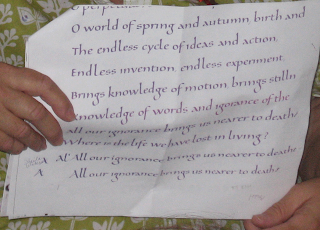 O perpetual
O world of spring and autumn, birth and
The endless cycle of ideas and action,
Endless invention, endless experiment,
Brings knowledge of motion, brings stilln
knowledge of words and igorance of the
All our ignorance brings us nearer to death,
Where is the life we have lost in living?
A Al' All our ignorance brings us nearer to death
A All our ignorance brings us nearer to death